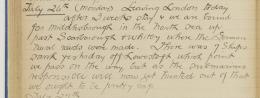 July 26th (Monday) Leaving London today
after 3 weeks stay & we are bound
for Middlesborough in the North Sea up
past Scarborough & Whitby where the German
Naval raids were made. There was 7 Ships
sank yesterday off Lowestoft which point
we pass on the way but as the submarines
responsible will now get hunted out of that
we ought to be pretty safe